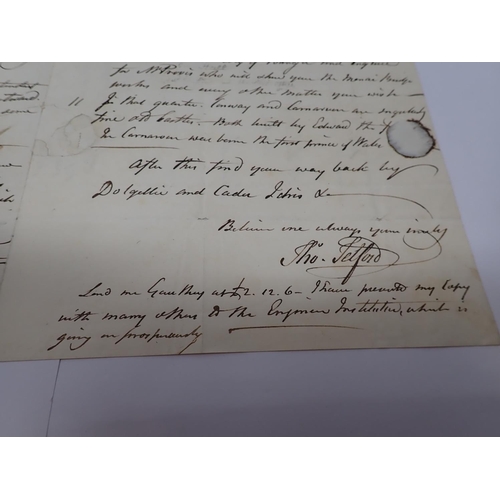 for Mr Provis who will shew you the Menai Bridge
works and every other matter you wish —
11 In that quarter. Conway and Carnarvon are singularly
fine old castles. Both built by Edward the
In Carnarvon was born the first prince of Wales
After this find your way back by
Dolgellie and Cader Idris &
Believe me always yours
Tho. Telford
Gauthey 2. 12. 6 — I have presented my Copy
with many others to the Engineer Institution, which is
going on prosperously